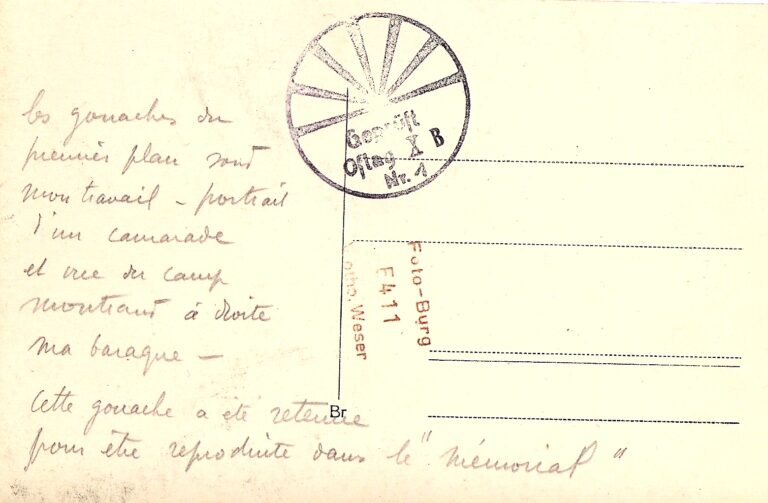 les gouaches du
premier plan sont
mon travail - portrait
d'un camarade
et vue du camp
montrant à droite
ma baraque -
Cette gouache a été retenue
pour être reproduite dans le "mémorial"
Geprüft
Oflag X B
Nr. 1
Foto-Burg
F411
Weser
Br